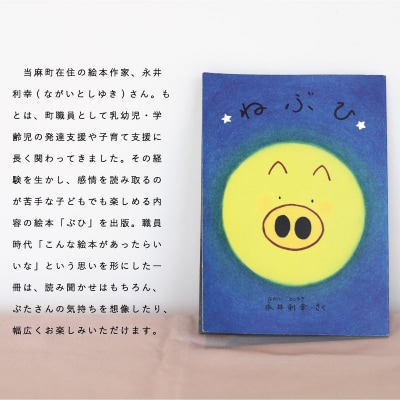 当麻町在住の絵本作家、永井
利幸(ながいとしゆき)さん。も
とは、町職員として乳幼児・学
齢児の発達支援や子育て支援に
長く関わってきました。その経
験を生かし、感情を読み取るの
が苦手な子どもでも楽しめる内
容の絵本「ぶひ」を出版。職員
時代「こんな絵本があったらい
いな」という思いを形にした一
冊は、読み聞かせはもちろん、
ぶたさんの気持ちを想像したり、
幅広くお楽しみいただけます。
ねぶひ
ながい としゆき
永井利幸 さく